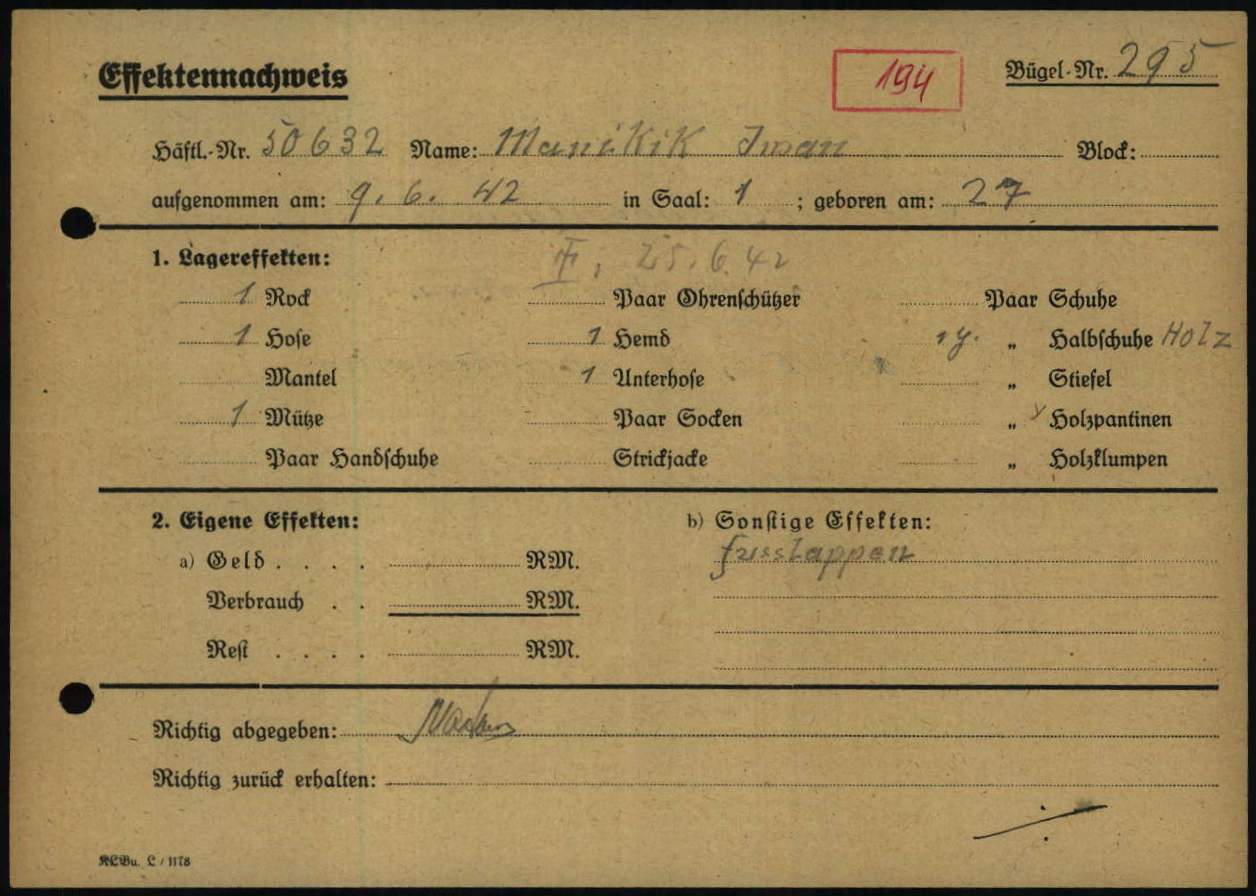 Effektennachweis 194 Bügel-Nr. 295
Häftl.-Nr. 50632 Name: Manikik Iwan Block:
aufgenommen am: 9. 6. 42 in Saal: 1 ; geboren am: 27
1. Lagereffekten: 25. 6. 42
1 Rock Paar Ohrenschützer Paar Schuhe
1 Hose 1 Hemd 1 „ Halbschuhe Holz
Mantel 1 Unterhose „ Stiefel
1 Mütze Paar Socken „ Holzpantinen
Paar Handschuhe Strickjacke „ Holzklumpen
2. Eigene Effekten: b) Sonstige Effekten:
a) Geld . . . . RM. fusslappen
Verbrauch . . RM.
Rest . . . . RM.
Richtig abgegeben:
Richtig zurück erhalten:
KLBu. L / 1178